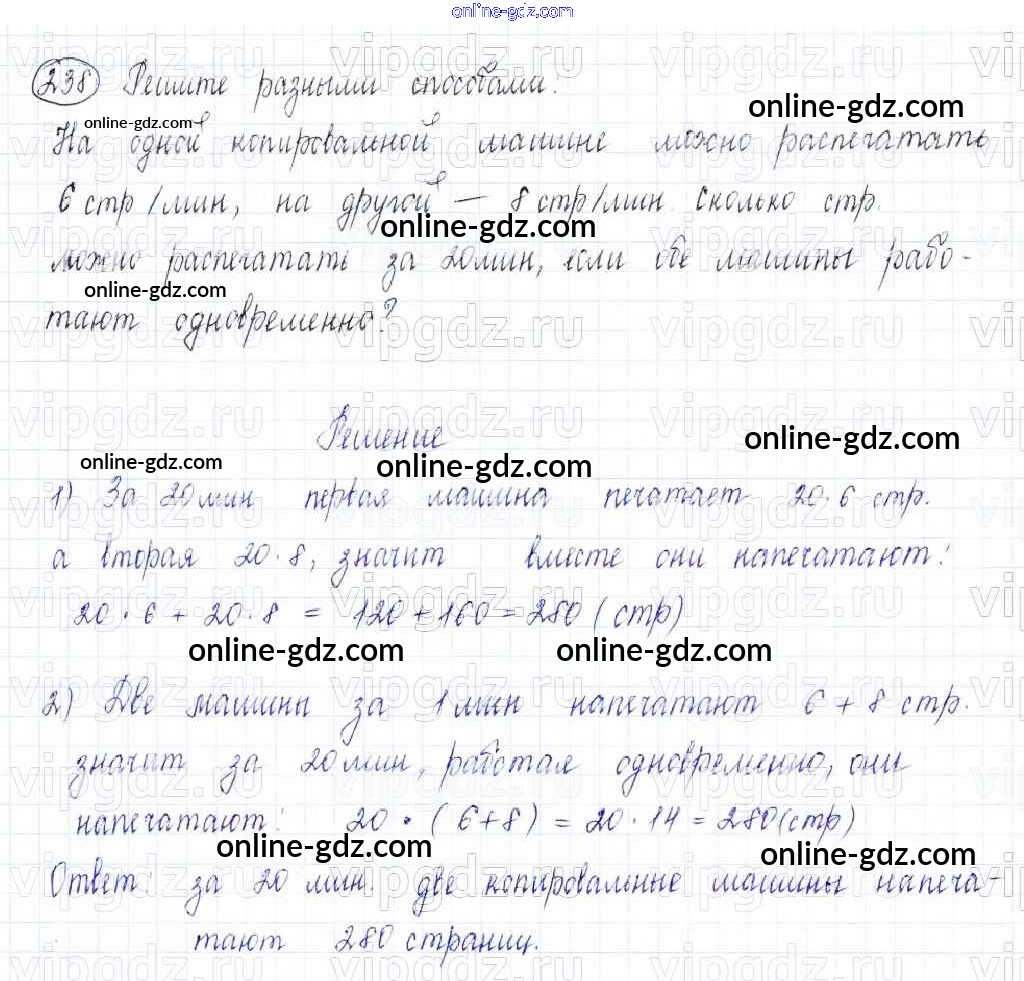 online-gdz.com
238 Решите разными способами:
online-gdz.com
online-gdz.com
На одной копировальной машине можно распечатать
6 стр/мин, на другой — 8 стр/мин. Сколько стр.
online-gdz.com
можно распечатать за 20 мин, если обе машины рабо-
online-gdz.com
тают одновременно?
vipgdz.ru
Решение
online-gdz.com
online-gdz.com
online-gdz.com
1) За 20 мин первая машина печатает 20·6 стр.
а вторая 20·8, значит вместе они напечатают:
20·6 + 20·8 = 120 + 160 = 280 (стр)
online-gdz.com
online-gdz.com
2) Две машины за 1 мин напечатают 6 + 8 стр.
значит за 20 мин, работая одновременно, они
напечатают: 20·(6+8) = 20·14 = 280 (стр)
online-gdz.com
online-gdz.com
Ответ: за 20 мин. две копировальные машины напеча-
тают 280 страниц.